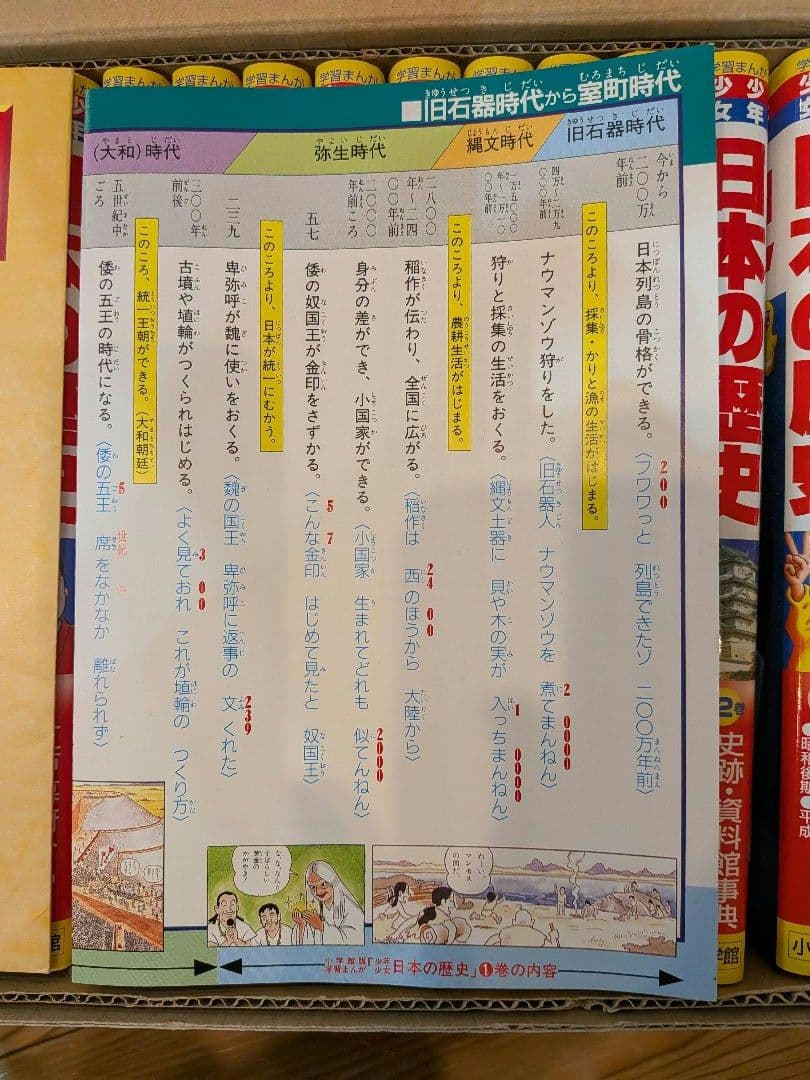 学習まんが
学習まんが
学習まんが
学習まんが
学習まんが
学習まんが
■旧石器時代から室町時代
きゅうせっきじだい
むろまちじだい
旧石器時代
縄文時代
弥生時代
(大和)時代
今から二〇〇万年前
日本列島の骨格ができる。
〈フワワっと 列島できたゾ 二〇〇万年前〉
200
このころより、採集・かりと漁の生活がはじまる。
四万〜二万九〇〇〇年前
ナウマンゾウ狩りをした。
〈旧石器人 ナウマンゾウを 煮てまんねん〉
2 0000
一万五〇〇〇年〜一万二〇〇〇年前
狩りと採集の生活をおくる。
〈縄文土器に 貝や木の実が 入っちまんねん〉
1 0000
このころより、農耕生活がはじまる。
二八〇〇年〜二四〇〇年前
稲作が伝わり、全国に広がる。
〈稲作は 西のほうから 大陸から〉
24 00
二〇〇〇年前ころ
身分の差ができ、小国家ができる。
〈小国家 生まれてどれも 似てんねん〉
2000
五七
倭の奴国王が金印をさずかる。
〈こんな金印 はじめて見たと 奴国王〉
5 7
このころより、日本が統一にむかう。
二三九
卑弥呼が魏に使いをおくる。
〈魏の国王 卑弥呼に返事の 文くれた〉
239
三〇〇年前後
古墳や埴輪がつくられはじめる。
〈よく見ておれ これが埴輪の つくり方〉
3 00
このころ、統一王朝ができる。〈大和朝廷〉
五世紀中ごろ
倭の五王の時代になる。
〈倭の五王 席をなかなか 離れられず〉
5 世紀
わーい、マンモスの肉だ。
な、な、なんとすばらしい黄金のかがやき!
小学館版 学習まんが「少年少女日本の歴史」❶巻の内容
少年
少女
日本の歴史
2巻
史跡・資料館事典
学館
昭和後期・平成
小
館